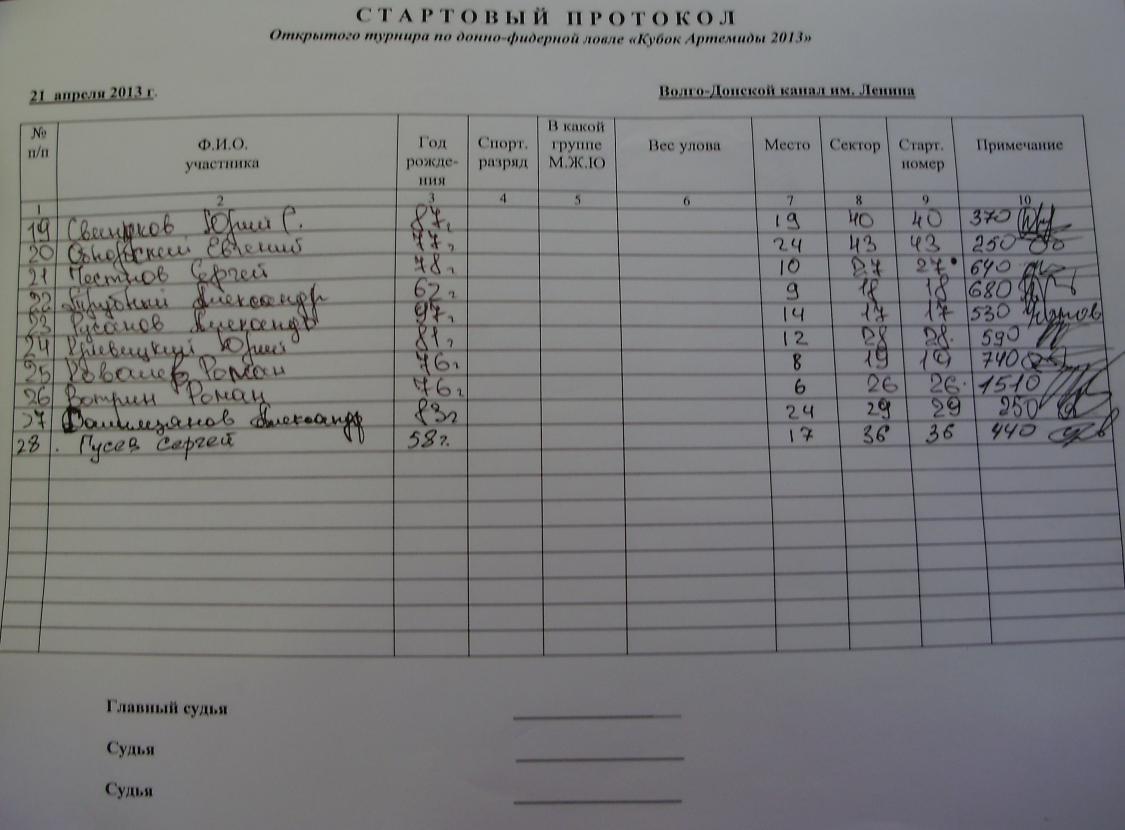 СТАРТОВЫЙ ПРОТОКОЛ
Открытого турнира по донно-фидерной ловле «Кубок Артемиды 2013»
21 апреля 2013 г. Волго-Донской канал им. Ленина
№ п/п Ф.И.О. участника Год рожде-ния Спорт. разряд В какой группе М.Ж.Ю Вес улова Место Сектор Старт. номер Примечание
1 2 3 4 5 6 7 8 9 10
19 Юрий С. 87г 19 40 40 370
20 Евгений 77г 24 43 43 250
21 Сергей 78г 10 27 27 640
22 Александр 62г 9 18 18 680
23 Русанов Александр 97г 14 17 17 530
24 Кривицкий Юрий 81г 12 28 28 590
25 Ковалев Роман 76г 8 19 19 740
26 Вотрин Роман 76г 6 26 26 1510
27 Александр 83г 24 29 29 250
28. Гусев Сергей 58г. 17 36 36 440
Главный судья
Судья
Судья